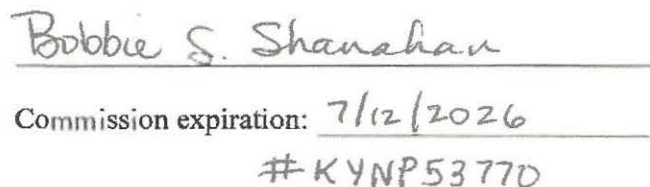 Bobbie S. Shanahan
Commission expiration: 7/12/2026
#KYNP53770